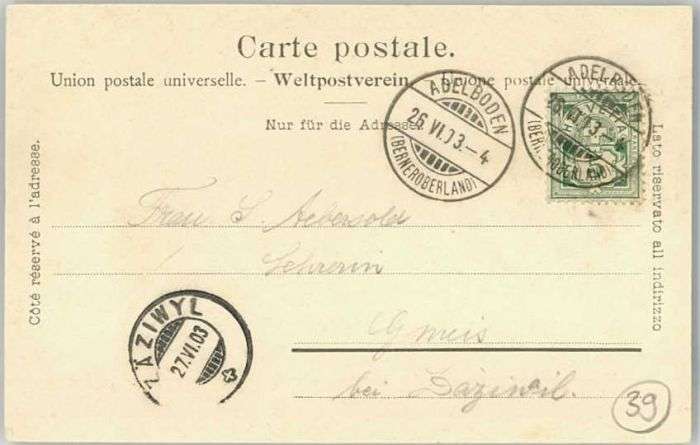 Carte postale.
Union postale universelle. – Weltpostverein – Unione postale universale.
Nur für die Adresse.
Côté réservé à l'adresse.
Lato riservato all indirizzo
ADELBODEN
26 VI 03 – 4
(BERNEROBERLAND)
ADELBODEN
26 VI 03 – 4
(BERNEROBERLAND)
Frau L. Aebersold
Lehrerin
Gmeis
bei Zäziwil.
ZÄZIWYL
27.VI.03
39